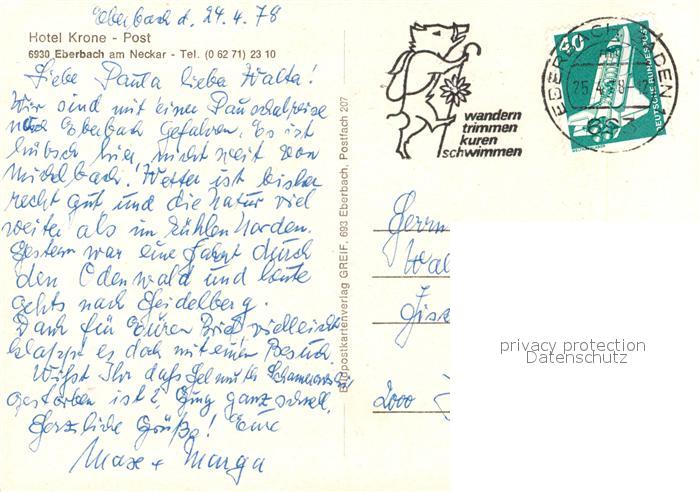 Eberbach d. 24.4.78
Hotel Krone - Post
6930 Eberbach am Neckar - Tel. (0 62 71) 23 10
Liebe Paula lieber Walta!
Wir sind mit einer Pauschalreise
nach Eberbach gefahren. Es ist
hübsch hier, nicht weit von
Michelbach. Wetter ist bisher
recht gut und die Natur viel
weiter als im kühlen Norden.
Gestern war eine Fahrt durch
den Odenwald und heute
gehts nach Heidelberg.
Dank für Euren Brief vielleicht
klappt es doch mit einem Besuch.
Wißt Ihr daß Helmuth
gestorben ist? Ging ganz schnell.
Herzliche Grüße! Eure
Max + Marga
Bildpostkartenverlag GREIF, 693 Eberbach, Postfach 207
wandern
trimmen
kuren
schwimmen
40
DEUTSCHE BUNDESPOST
EBERBACH, BADEN
25.4.78
693
Herrn
Wal
2000
privacy protection
Datenschutz